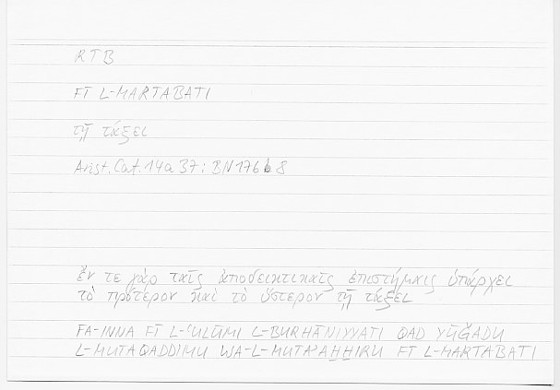 RTB
FĪ L-MARTABATI
τῇ τάξει
Arist. Cat. 14a 37; BN 176b8
ἔν τε γὰρ ταῖς ἀποδεικτικαῖς ἐπιστήμαις ὑπάρχει
τὸ πρότερον καὶ τὸ ὕστερον τῇ τάξει
FA-INNA FĪ L-ʿULŪMI L-BURHĀNIYYATI QAD YŪǦADU
L-MUTAQADDIMU WA-L-MUTAʾAḪḪIRU FĪ L-MARTABATI